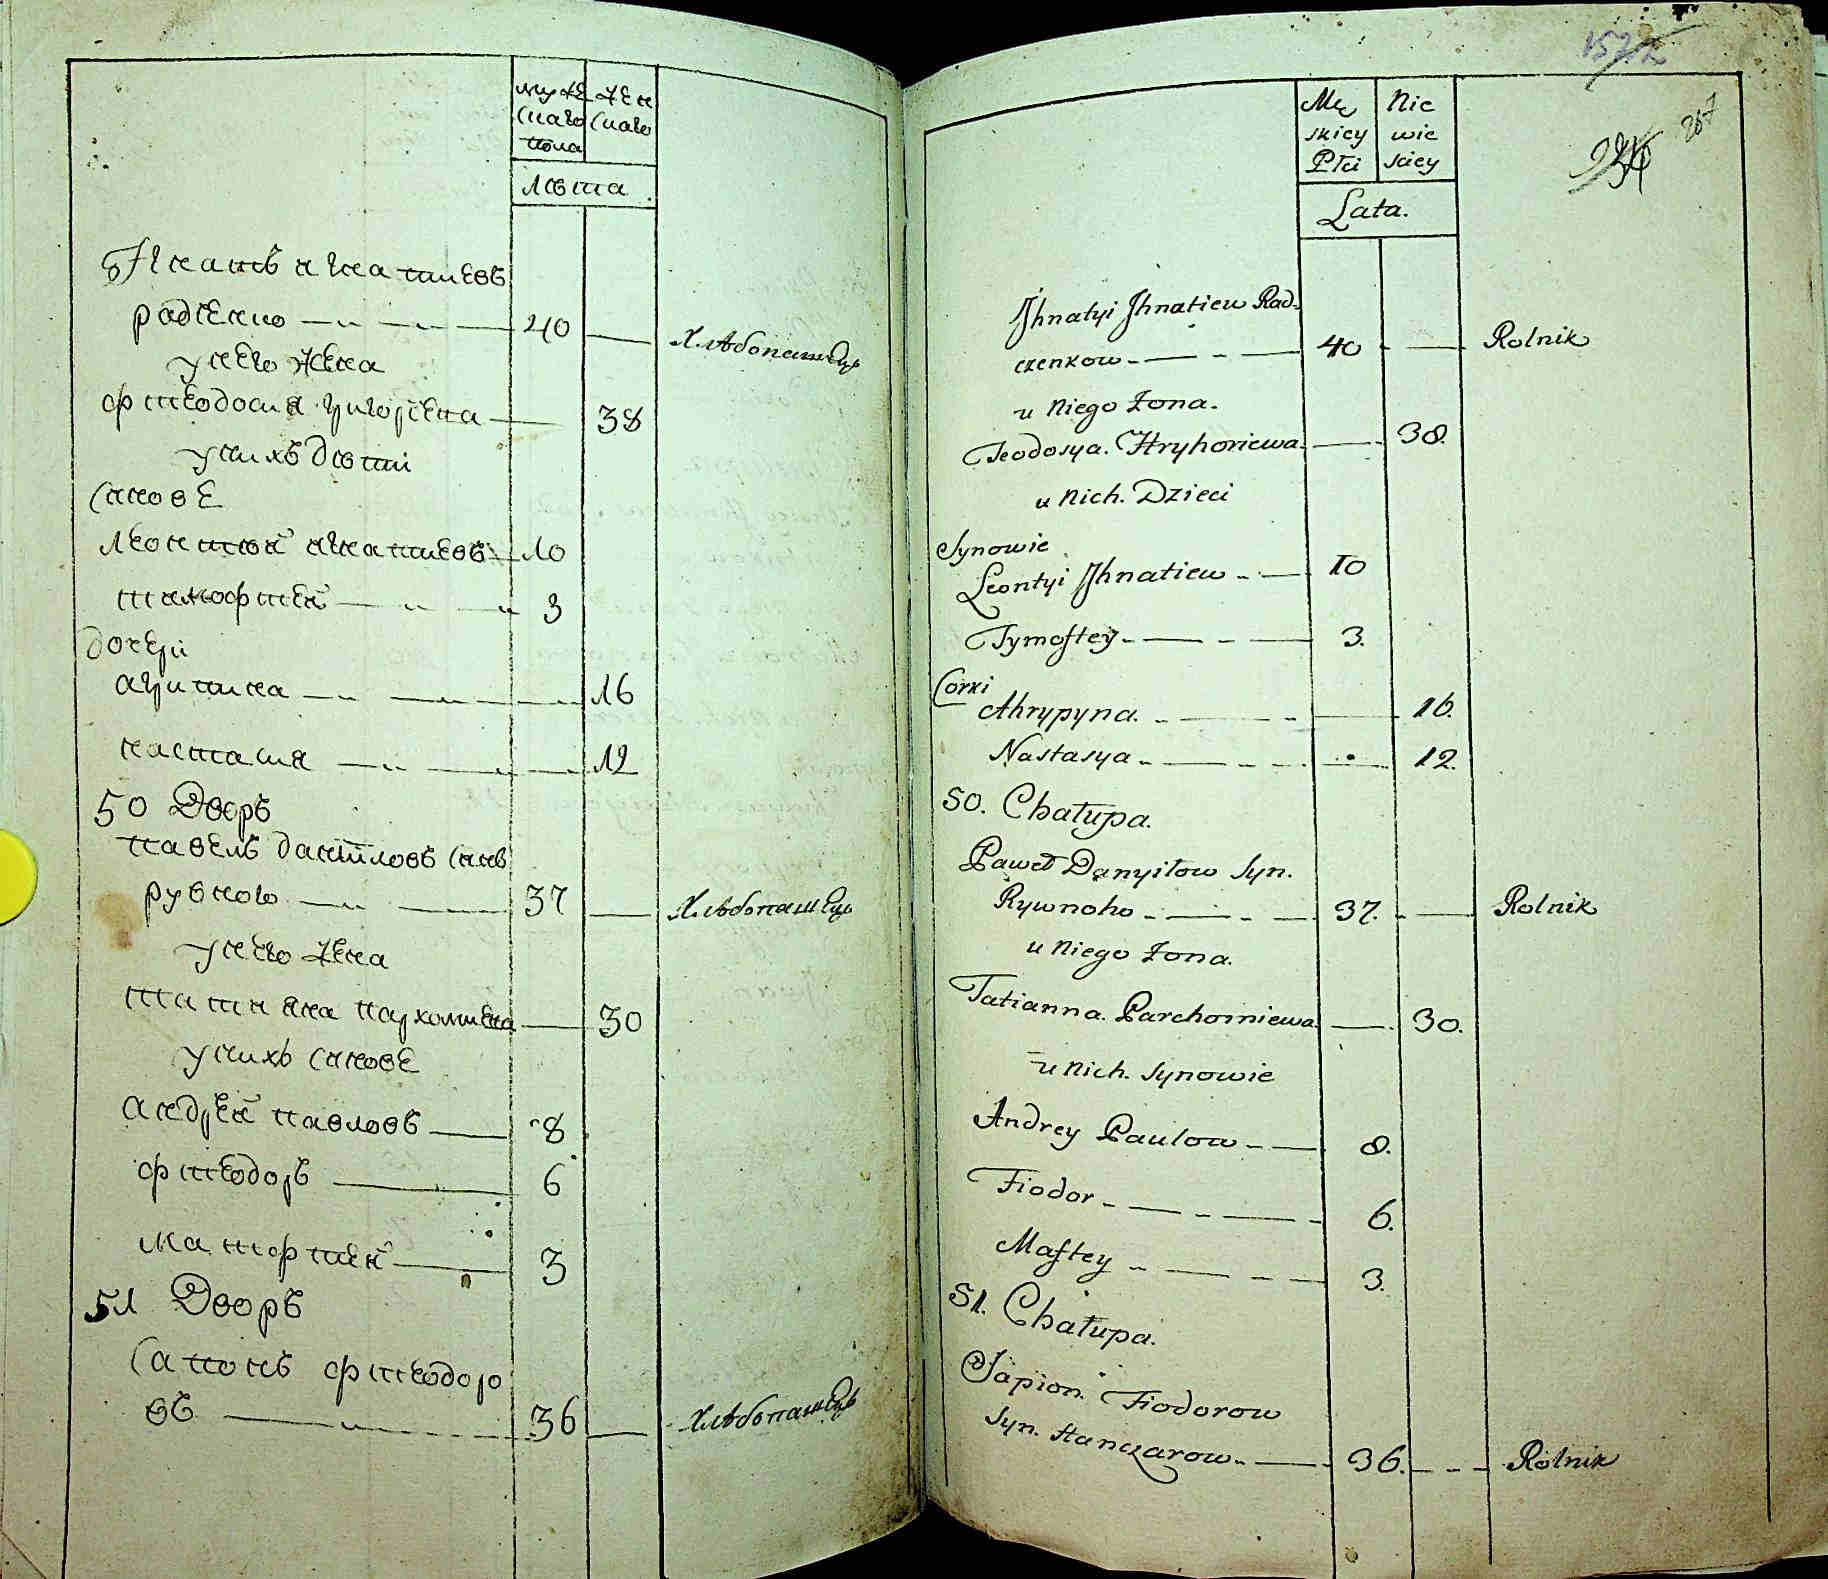 муже
скаго
пола
жен
скаго
лѣта
Игнатъ игнатиевъ
радченко 40 Хлѣбопашецъ
унего жена
фтеодосия григорієва 38
унихъ дѣти
синове
леонтий игнатиевъ 10
тимофтей 3
дочери
агрипина 16
настасия 12
50 Дворъ
павелъ даниіловъ синъ
рувного 37 Хлѣбопашецъ
унего жена
татияна пархомиева 30
унихъ синове
андрей павловъ 8
фтеодоръ 6
матфтей 3
51 Дворъ
Сапонъ фтеодоро
въ 36 Хлѣбопашецъ
157
267
Mę
skiey
Płci
Nie
wie
sciey
Lata.
Jhnatyi Jhnatiew Rad-
czenkow 40 Rolnik
u Niego Żona.
Teodosya. Hryhoriewa. 38.
u Nich. Dzieci
Synowie
Leontyi Jhnatiew 10
Tymoftey 3.
Corki
Ahrypyna. 16.
Nastasya 12.
50. Chałupa.
Paweł Danyiłow Syn.
Rywnoho 37. Rolnik
u Niego Żona.
Tatianna. Parchomiewa. 30.
u Nich. Synowie
Andrey Pawlow 8.
Fiodor 6.
Maftey 3.
51. Chałupa.
Sapion. Fiodorow
Syn. Hanczarow 36. Rolnik